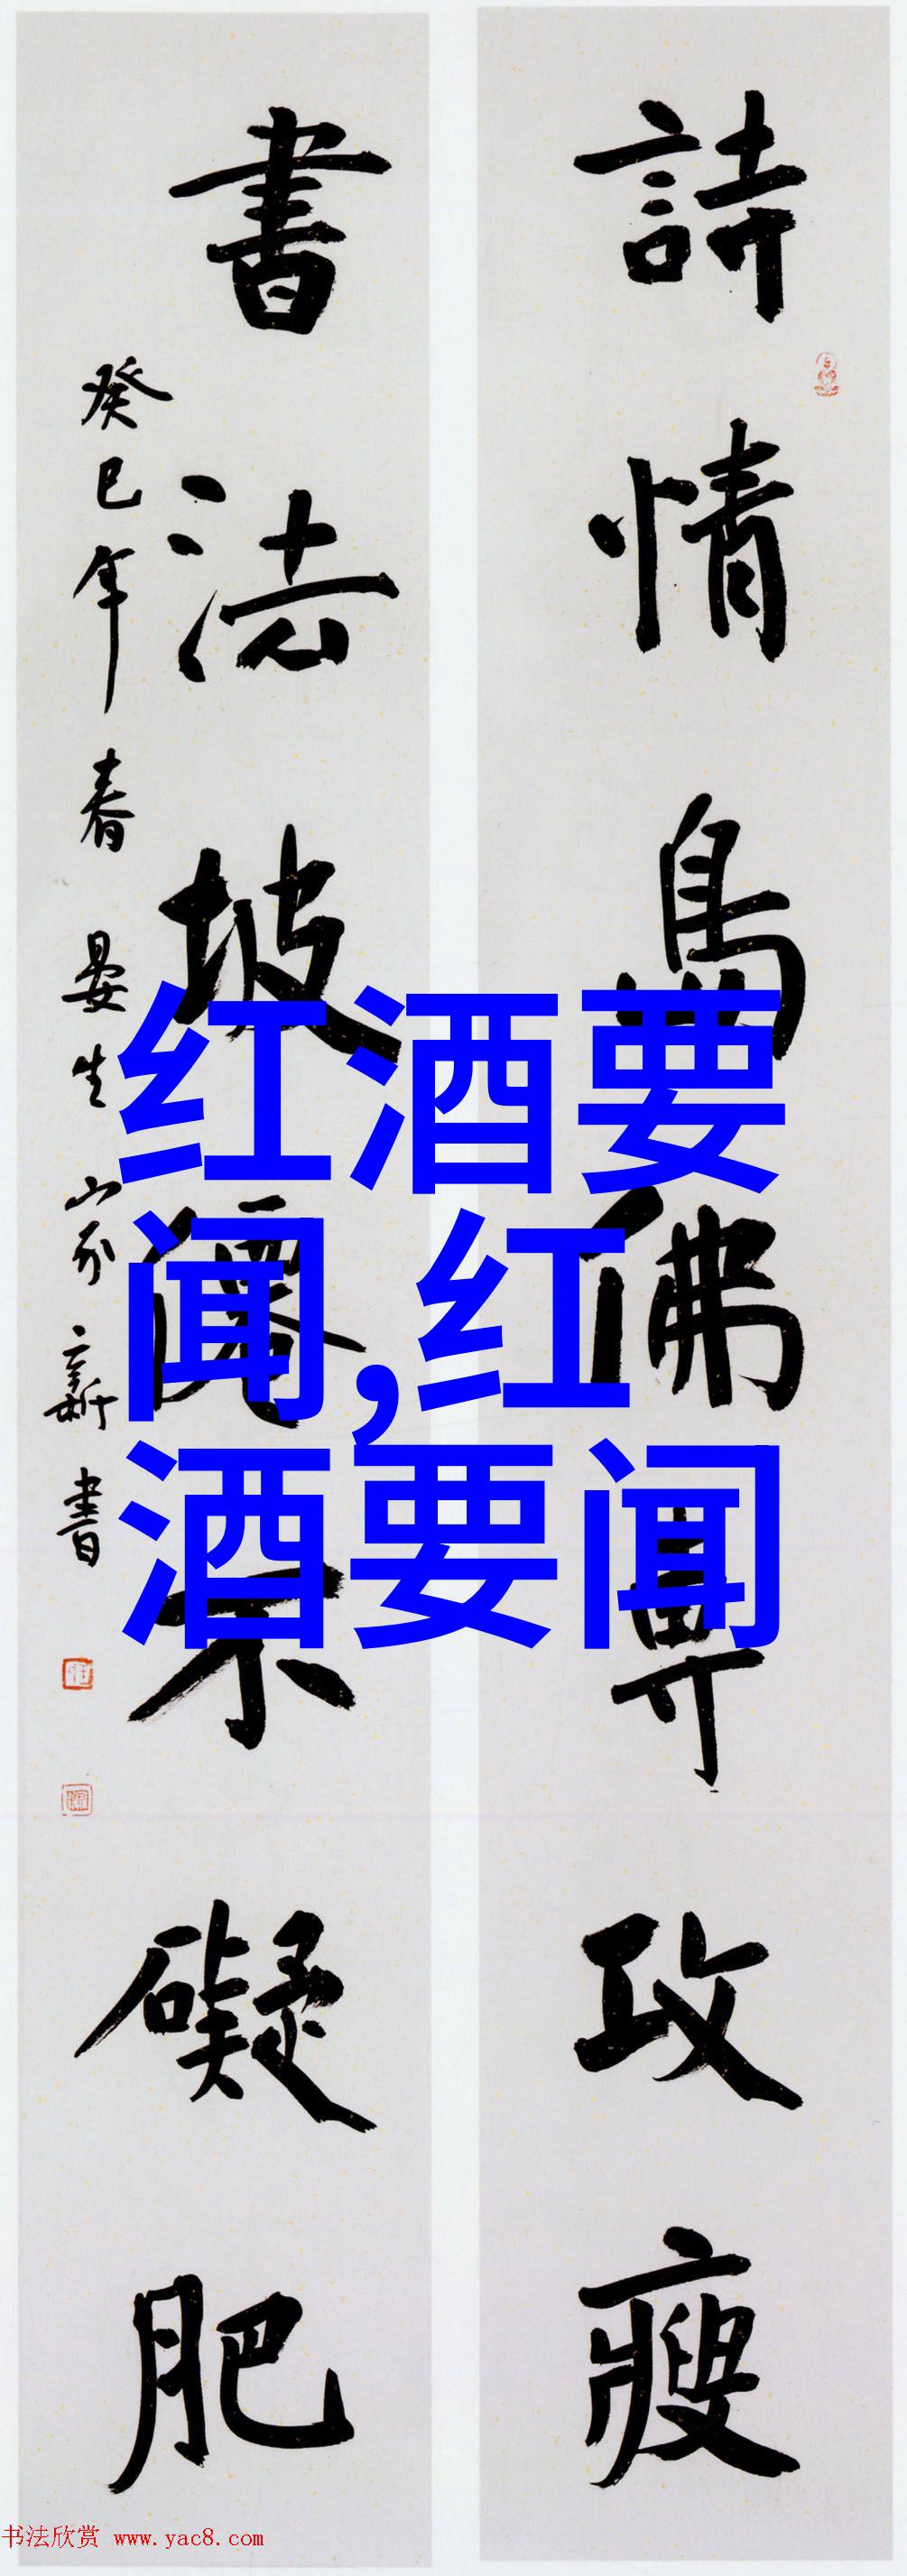 詩情島佛瘦
書法坡僊不礙肥
癸巳年春晏生家新書
红酒要
闻,红
酒要闻
书法欣赏 www.yac8.com